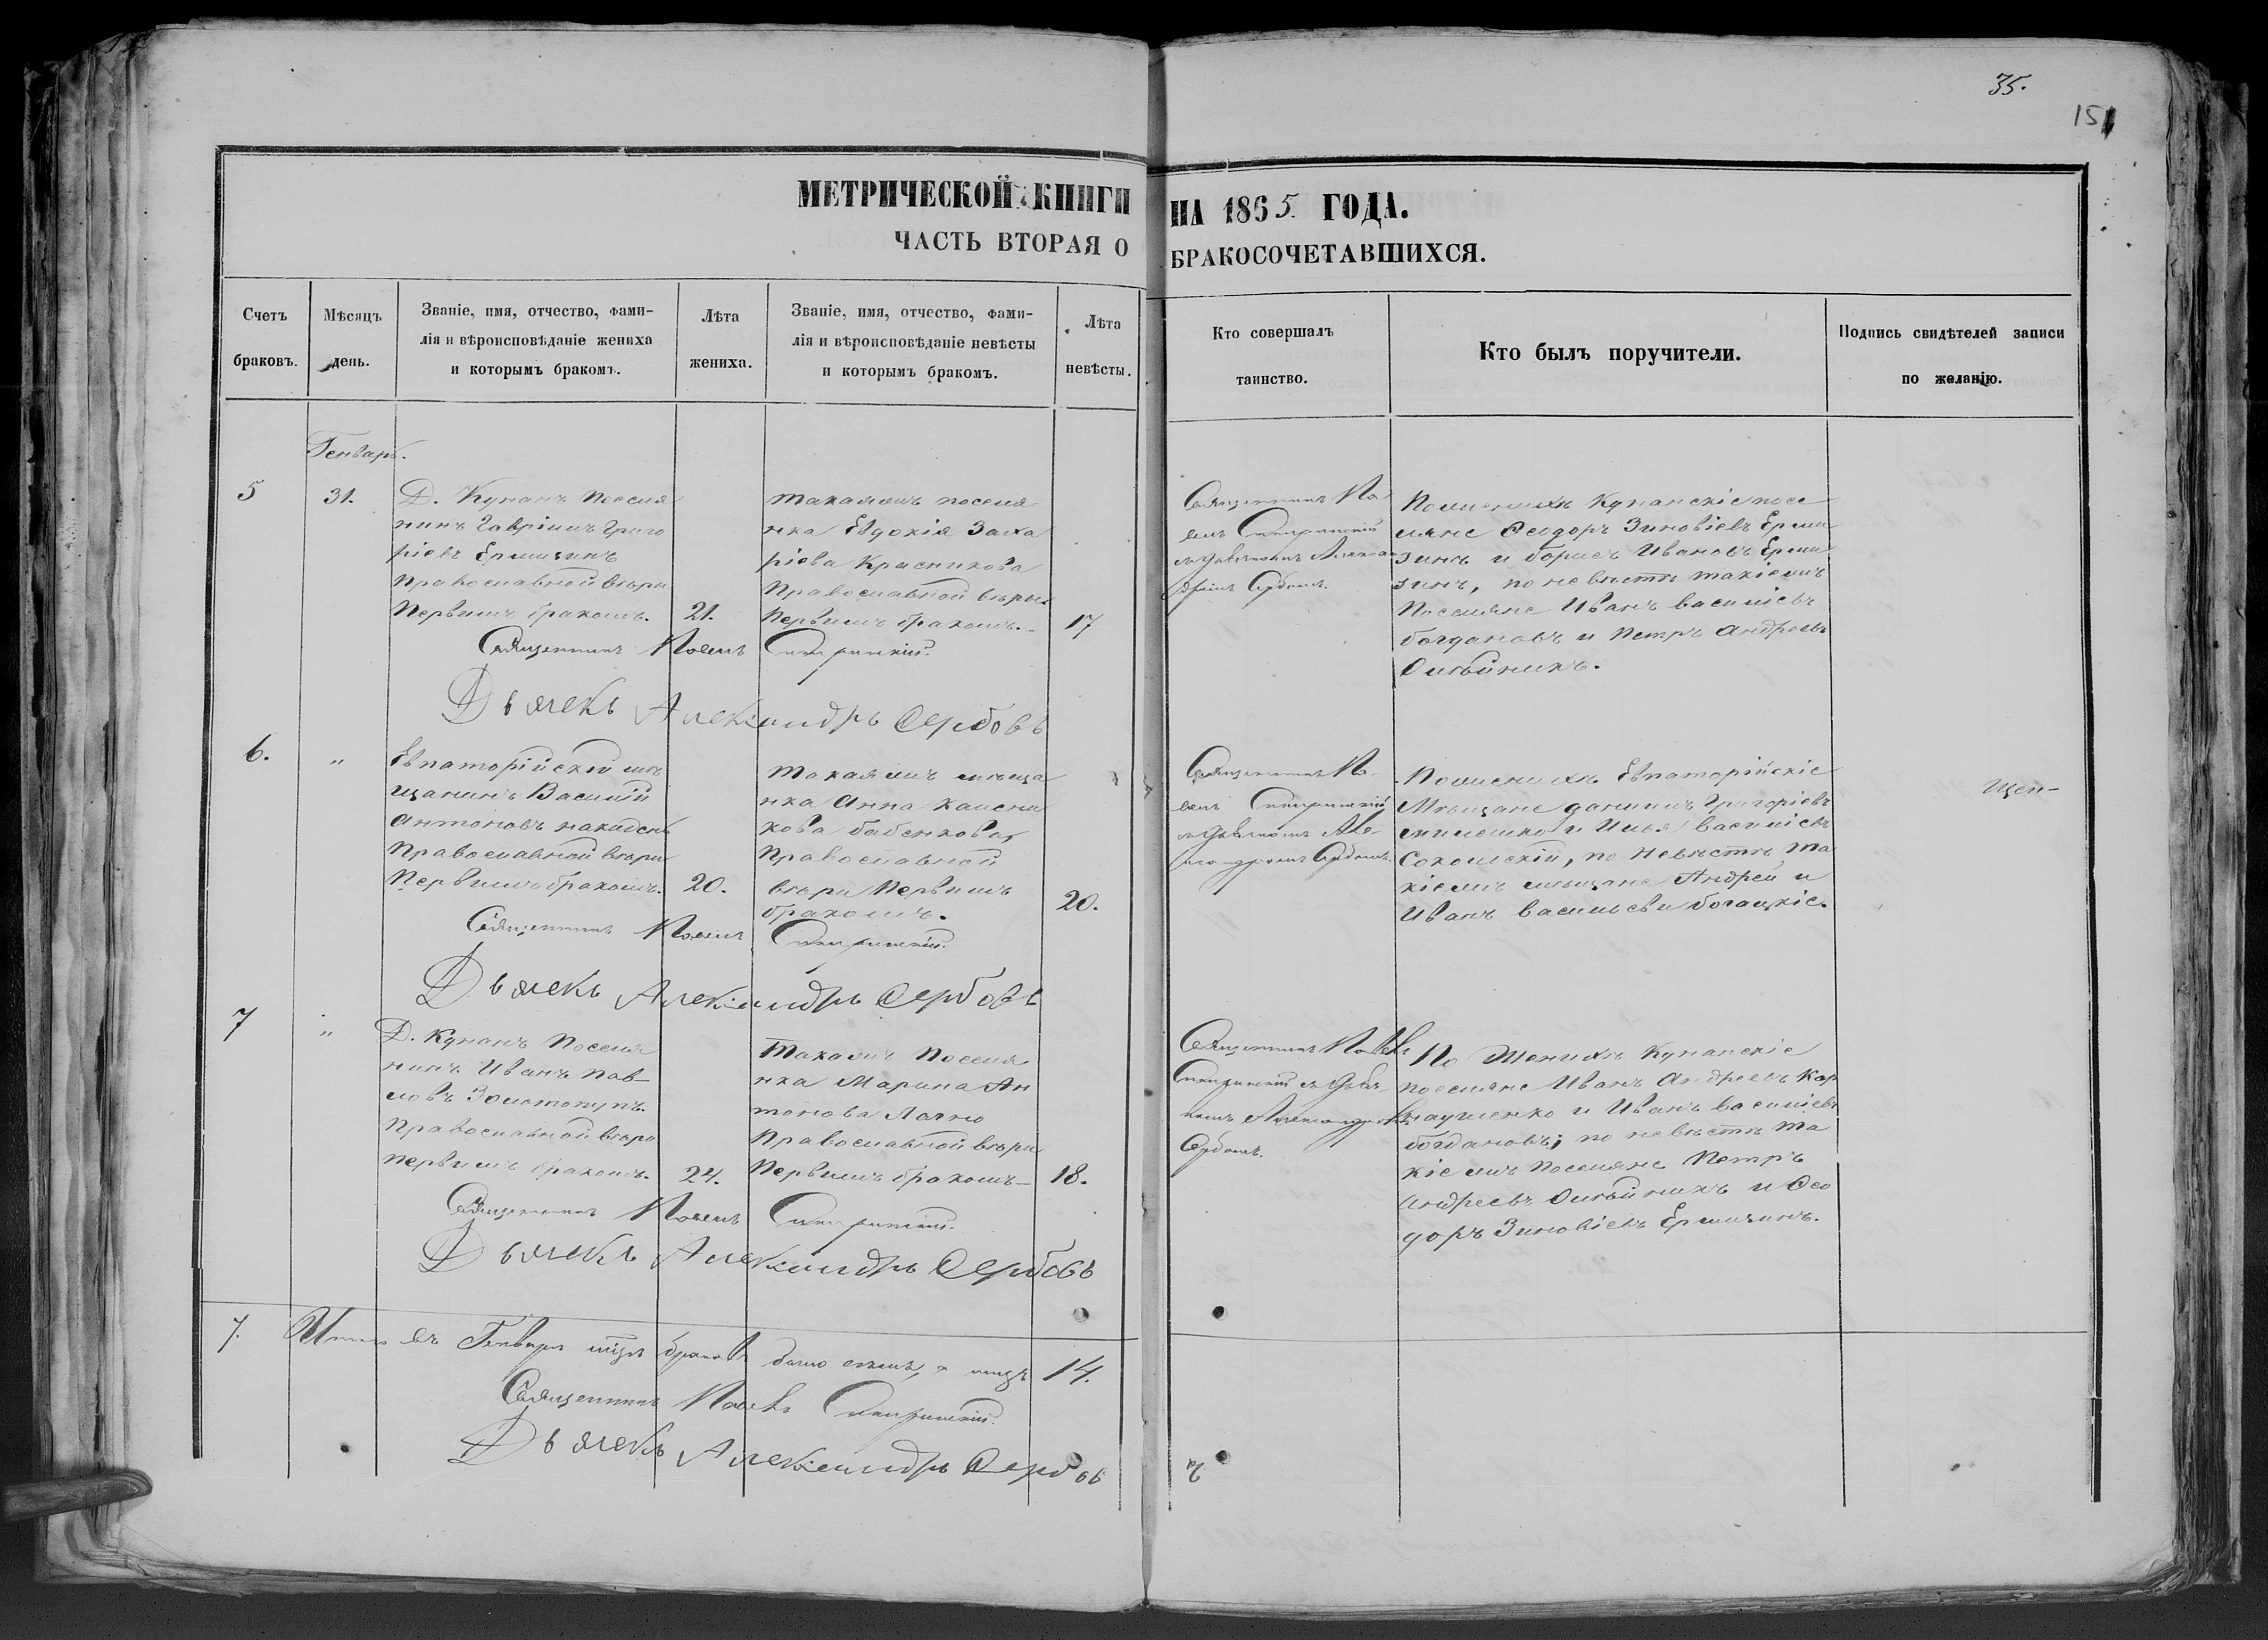 35.
151
МЕТРИЧЕСКОЙ КНИГИ НА 1865 ГОДА.
ЧАСТЬ ВТОРАЯ О БРАКОСОЧЕТАВШИХСЯ.
Счетъ браковъ.
Мѣсяцъ день.
Званіе, имя, отчество, фами-
лія и вѣроисповѣданіе жениха
и которымъ бракомъ.
Лѣта жениха.
Званіе, имя, отчество, фами-
лія и вѣроисповѣданіе невѣсты
и которымъ бракомъ.
Лѣта невѣсты.
Кто совершалъ
таинство.
Кто былъ поручители.
Подпись свидѣтелей записи
по желанію.
Генварь.
5
31.
Д. Кунанъ поселя
нинъ Гавріилъ Григо
ріевъ Ермизинъ
Православной вѣры
Первымъ бракомъ.
21.
такаяжъ поселя
нка Евдокія Заха
ріева Красникова
Православной вѣры
Первымъ бракомъ.
17
Священникъ Па
велъ
съ дьячкомъ Алексан
дромъ Сербовымъ.
По женихѣ Кунанскіе посе
ляне Ѳеодоръ Зиновіевъ Ерми
зинъ и Борисъ Ивановъ Ерми
зинъ, по невѣстѣ такіежъ
Поселяне Иванъ Василіевъ
Богдановъ и Петръ Андреевъ
Олѣйникъ.
Священникъ Павелъ
Дьячекъ Александръ Сербовъ
6.
„
Евпаторійскій мѣ
щанинъ Василій
Антоновъ
Православной вѣры
Первымъ бракомъ.
20.
Такаяжъ мѣща
нка Анна
Бабенкова,
Православной
вѣры Первымъ
бракомъ.
20.
Священникъ Па
велъ
съ дьячкомъ Але
ксандромъ Сербовымъ.
По женихѣ Евпаторійскіе
Мѣщане Даніилъ Григоріевъ
и Илья Василіевъ
Сокольскій, по Невѣстѣ та
кіежъ мѣщане Андрей и
Иванъ Васильевы Богацкіе.
Священникъ Павелъ
Дьячекъ Александръ Сербовъ
7
„
Д. Кунанъ Поселя
нинъ Иванъ Пав-
ловъ Золотопупъ.
Православной вѣры
первымъ бракомъ.
24.
Такаяжъ Поселя
нка Марина Ан
тонова Лахно
Православной вѣры
Первымъ бракомъ
18.
Священникъ Павелъ
съ дьяч-
комъ Александромъ
Сербовымъ.
По Женихѣ Кунанскіе
поселяне Иванъ Андреевъ Кар
науменко и Иванъ Василіевъ
Богдановъ; по невѣстѣ та
кіежъ поселяне Петръ
Андреевъ Олѣйникъ и Ѳео
доръ Зиновіевъ Ермизинъ.
Священникъ Павелъ
Дьячекъ Александръ Сербовъ
7.
Итого въ Генварѣ мцѣ браковъ было семь, а лицъ 14.
Священникъ Павелъ
Дьячекъ Александръ Сербовъ